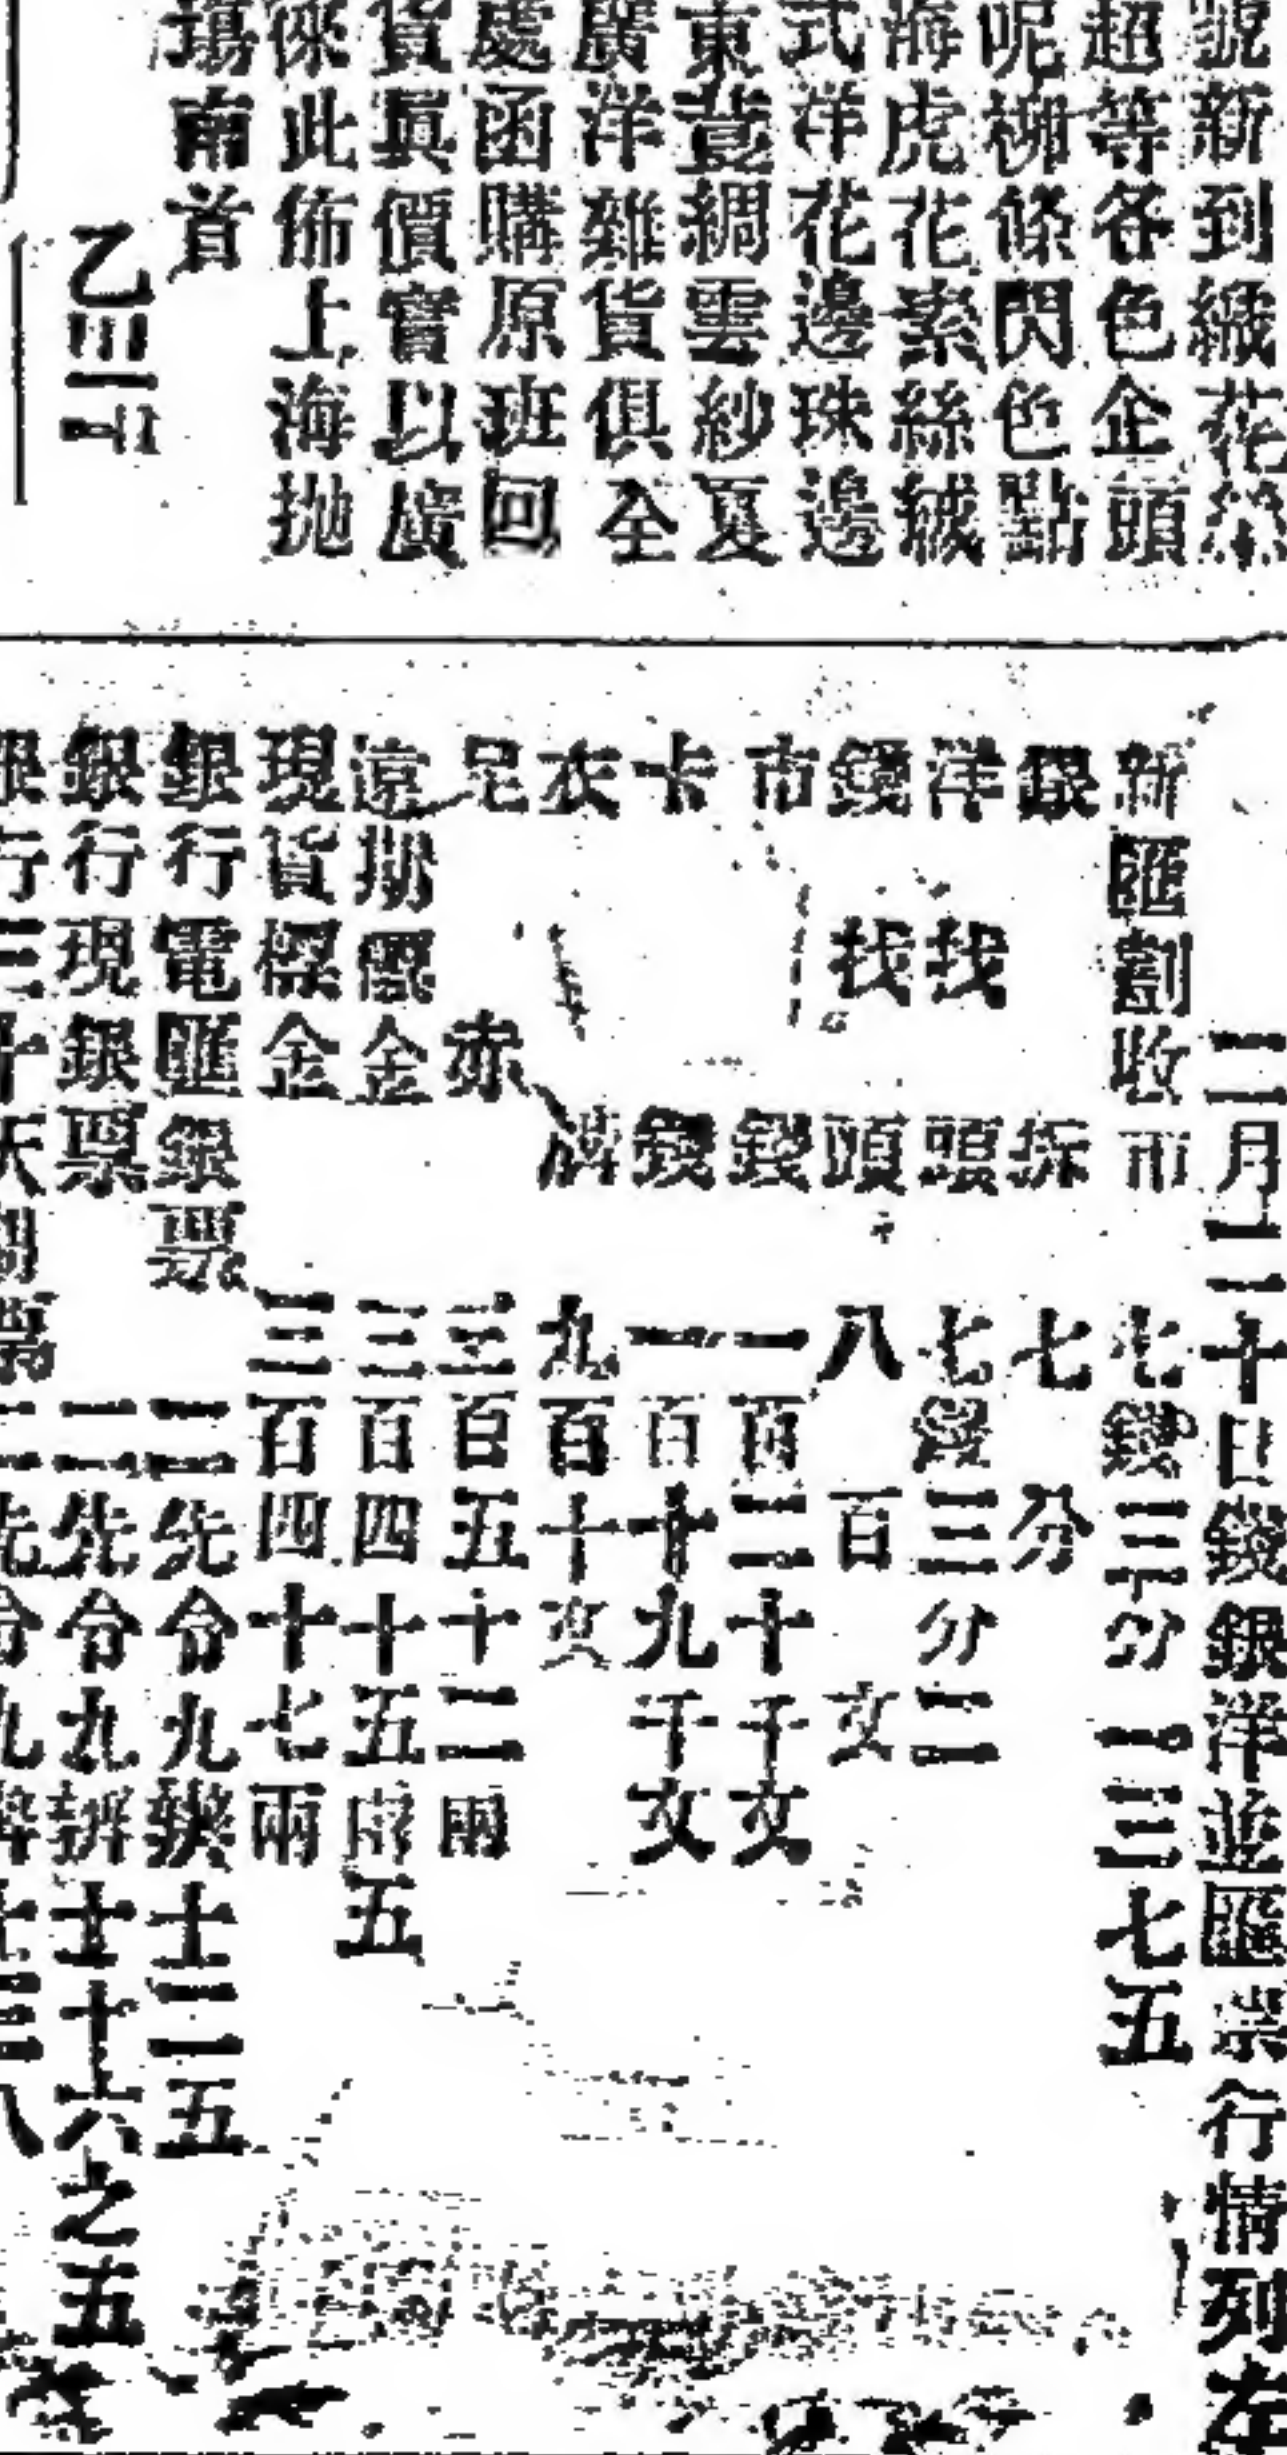 號新到緞花
超等各色企頭
呢柳條閃色點
海虎花素絲絨
式洋花邊珠邊
東莨綢雲紗夏
廣洋雜貨俱全
處函購原班回
貨眞價實以廣
徠此佈上海拋
塲南首
乙三一
二月二十日錢銀洋並匯票行情列左
新匯劃收市七錢三分一三七五
銀拆七分
洋找頭七錢三分二
錢找頭八百文
市錢一百二十千文
卡錢一百十九千文
衣牌九百十文
足赤三百五十二兩
遠期標金三百四十五兩五
現貨標金三百四十七兩
銀行電匯銀票二先令九辨士二五
銀行現銀票二先令九辨士十六之五
銀行三十天期票二先令九辨士三八